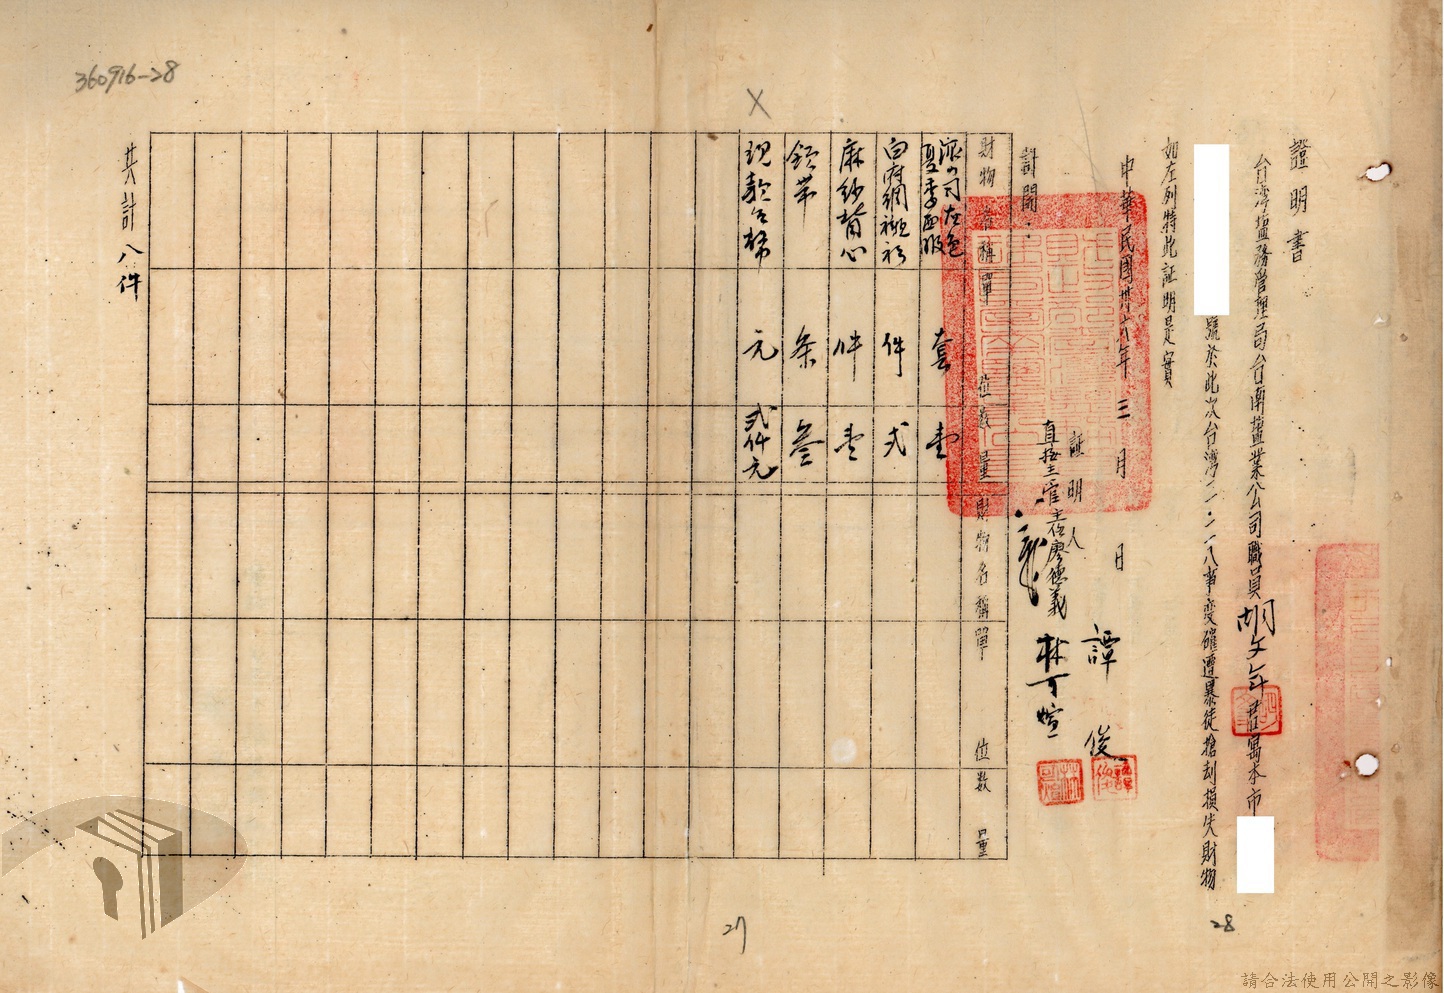 證明書
台湾塩務管理局台南塩業公司職員胡文年茲寓本市
號於此次台湾二·二八事变確遭暴徒搶刦損失財物
如左列特此証明是實
中華民國卅六年三月 日
証明人 譚俊
直接主官主任廖德義
林可煊
計開：
財物名稱 單位 数量 財物名稱 單位 数量
夏季西服 套 壹
白府綢襯衫 件 弍
麻紗背心 件 壹
領帶 条 叁
現款台幣 元 弍仟元
共計 八件
360916-28
27
28
請合法使用公開之影像